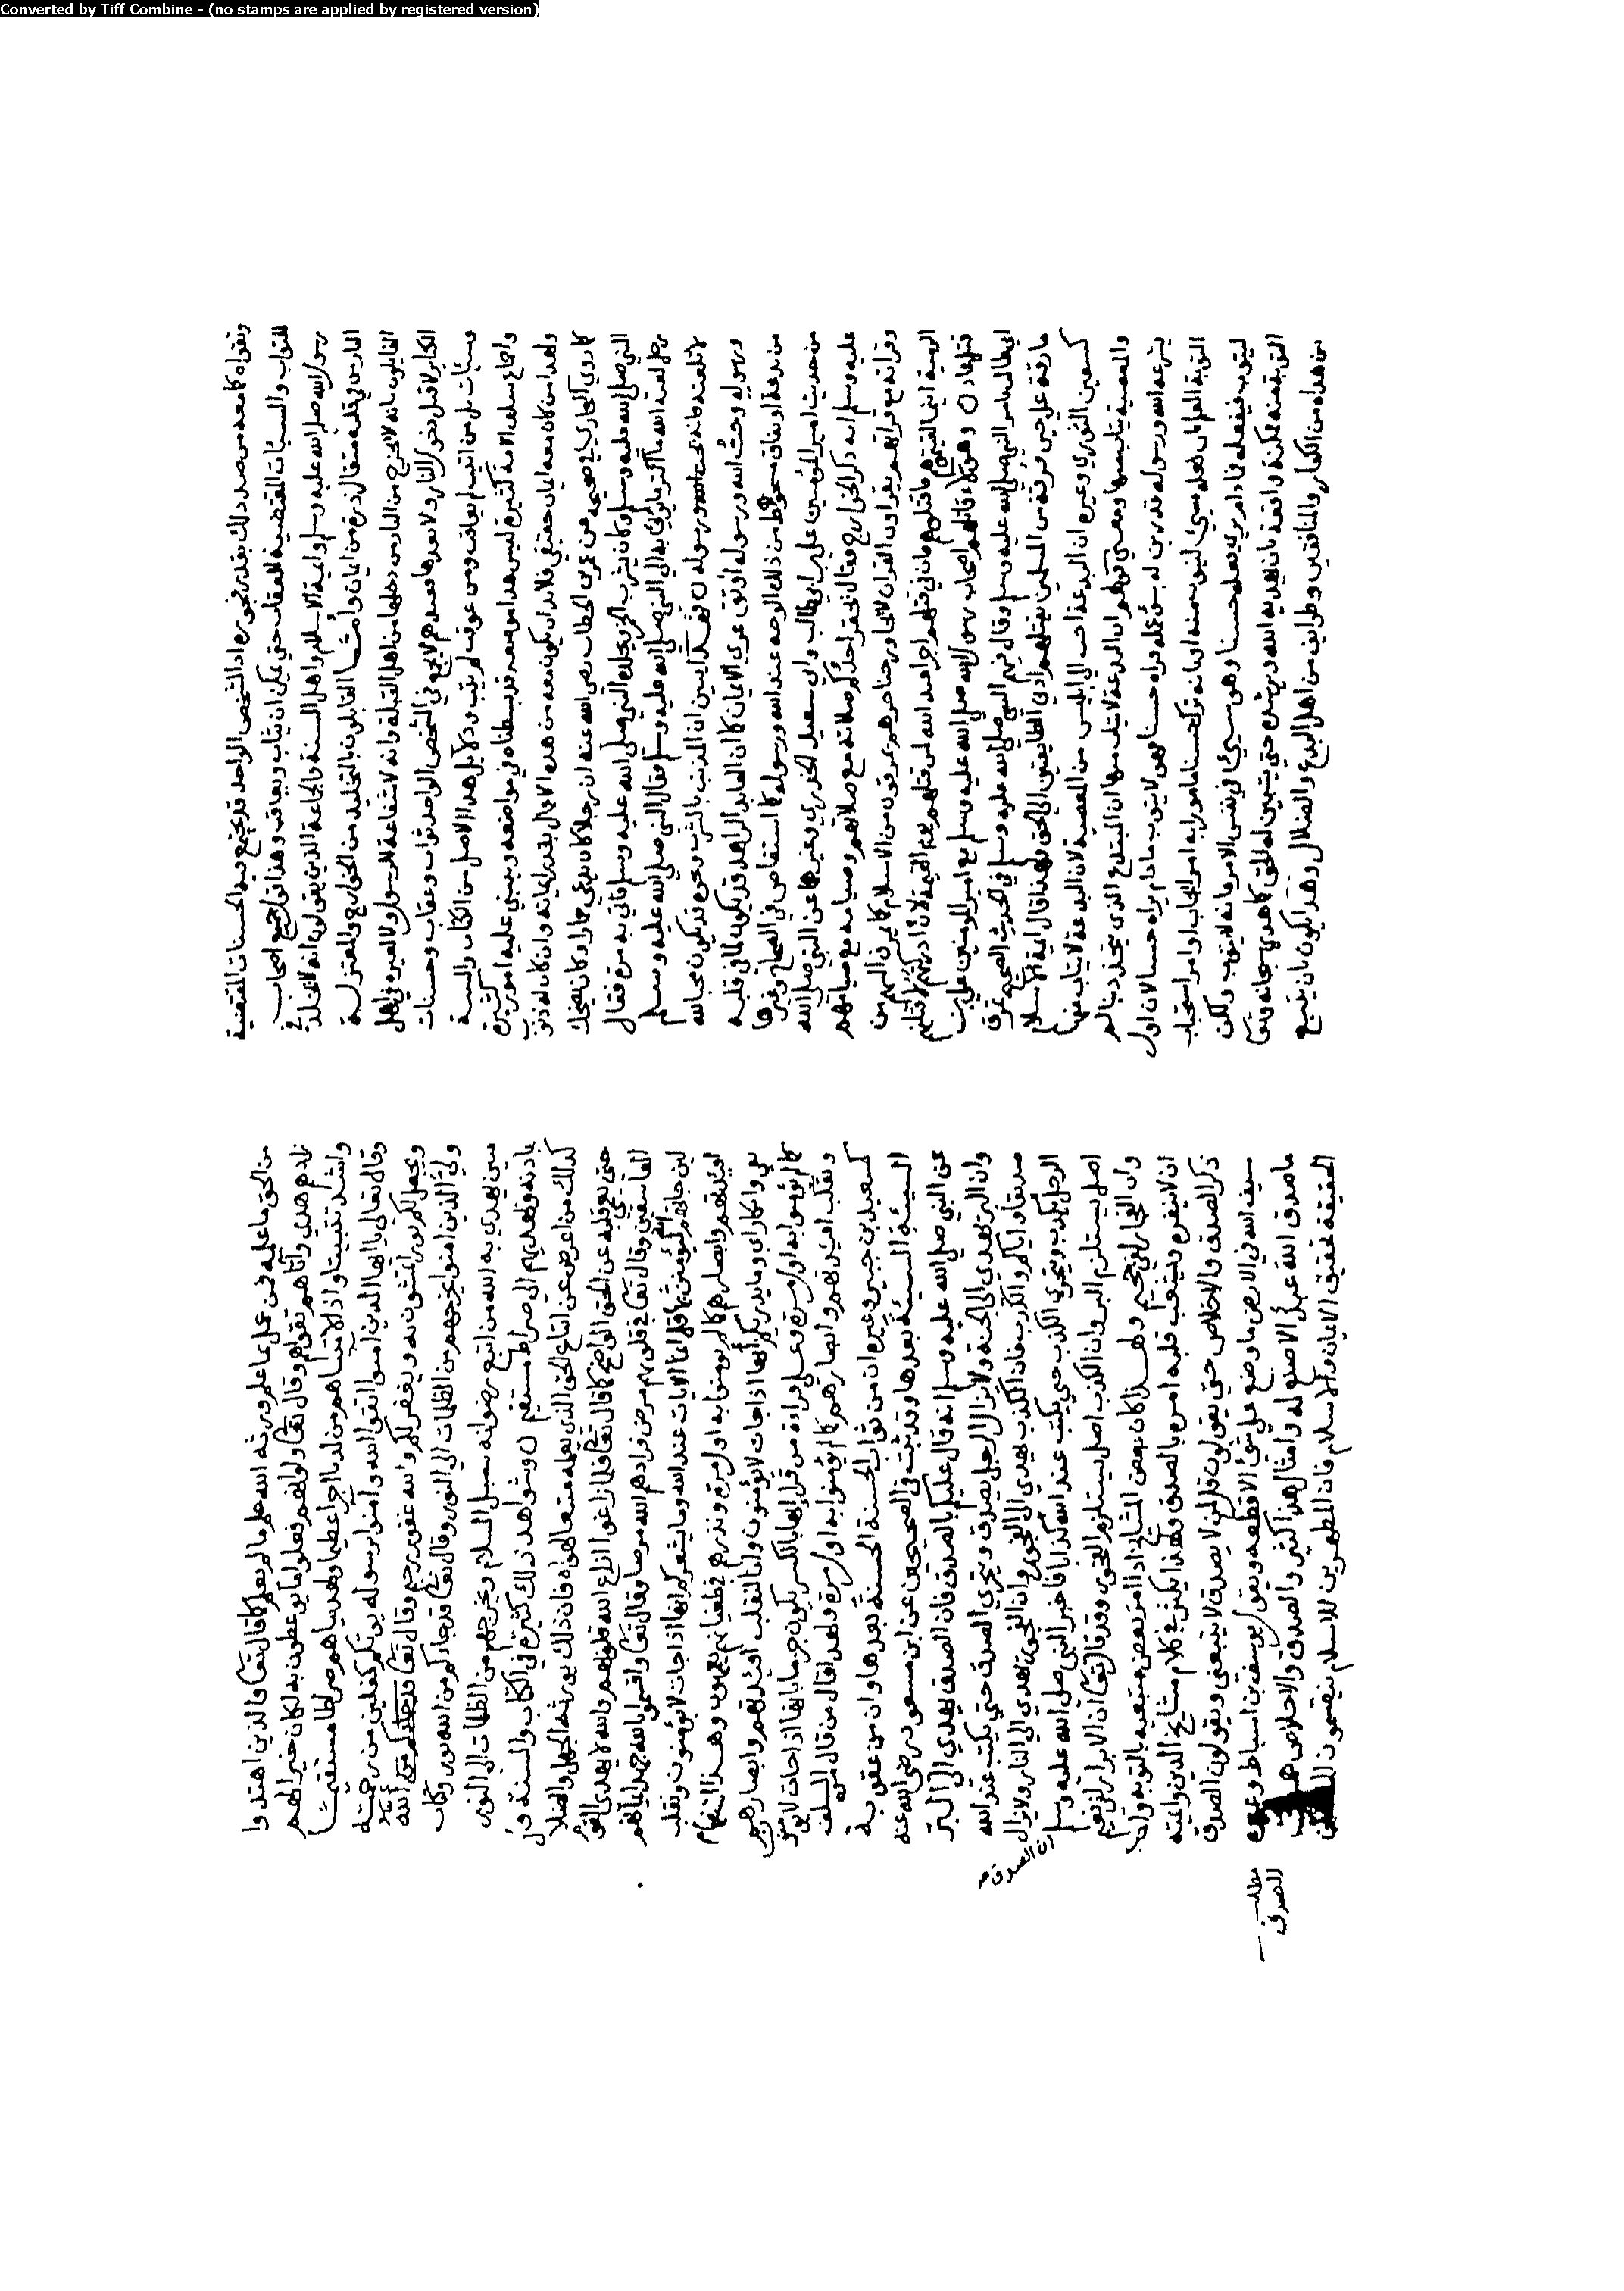 Converted by Tiff Combine - (no stamps are applied by registered version)
وتقواه كما معه من ضد ذلك بقدر فجوره اذ الشخص الواحد قد تجتمع فيه الحسنات المقتضية
للثواب والسيات المقتضية للعقاب حتى يمكن ان يثاب ويعاقب وهذا قول جميع اصحاب
رسول الله صلى الله عليه وسلم وايمة الاسلام واهل السنة والجماعة الذين يقولون انه لا يخلد في
النار من في قلبه مثقال ذرة من ايمان وأمّـا القايلون بالتخليد من الخوارج والمعتزلـة
القايلون بانه لا يخرج من النار من دخلها من اهل القبلة وانه لا شفاعة للرسول ولا لغيره في اهل
الكباير لا قبل دخول النار ولا بعدها فعندهم لا يجتمع في الشخص الواحد ثواب وعقاب وحسنات
وسيئات بل من اثيب لم يعاقب ومن عوقب لم يثب ودلايل هذا الاصل من الكتاب والسنة
واجماع سلف الامة كثيرة ليس هذا موضعه قد بسطناه في مواضعه وينبني عليه امور كثيرة
ولهذا من كان معه ايمان حقيقي فلا بد ان يكون معه من هذه الاعمال بقدر ايمانه وان كان له ذنوب
كما روى البخاري في صحيحه عن عمر بن الخطاب رضي الله عنه ان رجلا كان يدعى حمارا وكان يضحك
النبي صلى الله عليه وسلم وكان يشرب الخمر ويجلده النبي صلى الله عليه وسلم فاتي به مرة فقال
رجل لعنه الله ما اكثر ما يؤتى به الى النبي صلى الله عليه وسلم فقال النبي صلى الله عليه وسلم
لا تلعنه فانه يحب الله ورسوله ن فهـذا يبين ان المذنب بالشرب وغيره قد يكون محبا لله
ورسوله وحبّ الله ورسوله اوثق عرى الايمان كما ان العابد الزاهد قد يكون لما في قلبـه
من بدعة او نفاق مسخوط من ذلك الوجه عند الله ورسوله كما استفاض في الصحاح وغيرها
من حديث امير المؤمنين علي بن ابي طالب وابي سعيد الخدري وغيرهما عن النبي صلى الله
عليه وسلم انه ذكر الخوارج فقال يحقر احدكم صلاته مع صلاتهم وصيامه مع صيامهم
وقرانه مع قرانهم يقراون القران لا يجاوز حناجرهم يمرقون من الاسلام كما يمرق السهم من
الرمية اينما لقيتموهم فاقتلوهم فان في قتلهم اجرا عند الله لمن قتلهم يوم القيمة لان ادركتهم لاقتلنهم
قتل عاد ن وهؤلاء قاتلهم اصحاب رسول الله صلى الله عليه وسلم مع امير المومنين علي بن
ابي طالب بامر النبي صلى الله عليه وسلم وقال فيهم النبي صلى الله عليه وسلم في الحديث الصحيح تمرق
مارقة على حين فرقة من المسلمين يقتلهم ادنى الطايفتين الى الحق ولهذا قال ايمة الاسلام
كسفين الثوري وغيره ان البدعة احب الى ابليس من المعصية لان البدعة لا يتاب منها
والمعصية يتاب منها ومعنى قولهم ان البدعة لا يتاب منها ان المبتدع الذي يتخذ دينا لم
يشرعه الله ورسوله قد زين له سؤ عمله فراه حسنا فهو لا يتوب ما دام يراه حسنا لان اول
التوبة العلم بان فعله سيّئ ليتوب منه او بانه ترك حسنا مامورا به امر ايجاب او امر استحباب
ليتوب فيفعله فما دام يرى فعله حسنا وهو سيئ في نفس الامر فانه لا يتوب ولكن
التوبة منه ممكنة وواقعة بان يهديه الله ويرشده حتى يتبين له الحق كما هدى سبحانه وتعا
من هداه من الكفار والمنافقين وطوايف من اهل البدع والضلال وهذا يكون بان يتبع
من الحق ما علمه فمن عمل بما علم ورثه الله علم ما لم يعلم كما قال تعا والذين اهتدوا
زادهم هدى واتاهم تقواهم وقال تعا ولو انهم فعلوا ما يوعظون به لكان خيرا لهم
واشد تثبيتا واذا لاتيناهم من لدنا اجرا عظيما ولهديناهم صراطا مستقيمـا
وقال تعالى يا ايها الذين امنوا اتقوا الله وامنوا برسوله يؤتكم كفلين من رحمته
ويجعل لكم نورا تمشون به ويغفر لكم والله غفور رحيم وقال تعا الله
ولي الذين امنوا يخرجهم من الظلمات الى النور وقال تعا قد جاءكم من الله نور وكتاب
مبين يهدي به الله من اتبع رضوانه سبل السلام ويخرجهم من الظلمات الى النور
باذنه ويهديهم الى صراط مستقيم ن وشواهد ذلك كثيرة في الكتاب والسنة وكـ
كذلك من اعرض عن اتباع الحق الذي يعلمه متبعا لهواه فان ذلك يورثه الجهل والضلال
حتى يعمى قلبه عن الحق الواضح كما قال تعا فلما زاغوا ازاغ الله قلوبهم والله لا يهدي القوم
الفاسقين وقال تعا في قلوبهم مرض فزادهم الله مرضا وقال تعا واقسموا بالله جهد ايمانهم
لين جاءتهم اية ليؤمنن بها قل انما الايات عند الله وما يشعركم انها اذا جاءت لا يؤمنون ونقلب
افئدتهم وابصارهم كما لم يومنوا به اول مرة ونذرهم في طغيانهم يعمهون وهـذا استفهام
نفي وانكار اي وما يدريكم انها اذا جاءت لا يؤمنون وانا نقلب افئدتهم وابصارهم
كما لم يؤمنوا به اول مرة وعلى قراءة من قرأ انها بالكسر يكون جزما بانها اذا جاءت لا يومنون
ونقلب افئدتهم وابصارهم كما لم يؤمنوا به اول مرة ولهذا قال من قال من السلف
كسعيد بن جبير وغيره ان من ثواب الحسنة الحسنة بعدها وان من عقوبة
السيئة السيئة بعدها وقد ثبت في الصحيحين عن ابن مسعود رضي الله عنه
عن النبي صلى الله عليه وسلم انه قال عليكم بالصدق فان الصدق يهدي الى البر
وان البر يهدي الى الجنة ولا يزال الرجل يصدق ويتحرى الصدق حتى يكتب عند الله
صديقا واياكم والكذب فان الكذب يهدي الى الفجور وان الفجور يهدي الى النار ولا يزال
الرجل يكذب ويتحرى الكذب حتى يكتب عند الله كذابا فاخبر النبي صلى الله عليه وسلم
ان الصدق
اصل يستلزم البر وان الكذب اصل يستلزم الفجور وقد قال تعا ان الابرار لفي نعيم
وان الفجار لفي جحيم ولهـذا كان بعض المشايخ اذا امر بعض متبعيه بالتوبة واحب
ان لا ينفره ولا يشعب قلبه امره بالصدق ولهذا يكثر في كلام مشايخ الدين وايمته
ذكر الصدق والاخلاص حتى يقولون قل لمن لا يصدق لا يتبعني ويقولون الصدق
سيف الله في الارض ما وضع على شئ الا قطعه ويقول يوسف بن اسباط وغيره
مطلب
الصدق
ما صدق الله عبد الا صنع له وامثال هذا كثير والصدق والاخلاص همـا
الحقيقة تحقيق الايمان والاسلام فان المظهرين للاسلام ينقسمون الى